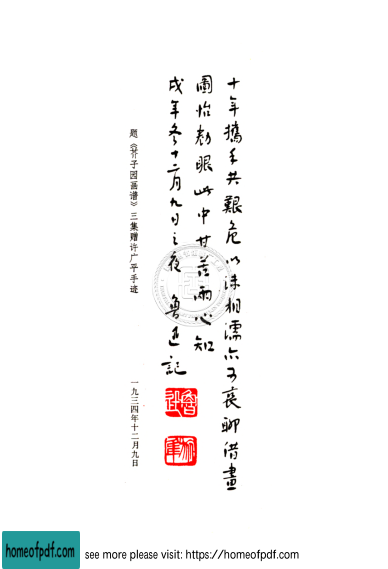 十年攜手共艱危以沫相濡亦可哀聊借畫
圖怡勌眼此中甘苦兩心知
戌年冬十二月九日之夜 魯迅記
魯迅
旅隼
题《芥子园画谱》三集赠许广平手迹
一九三四年十二月九日
homeofpdf.com
see more please visit: https://homeofpdf.com